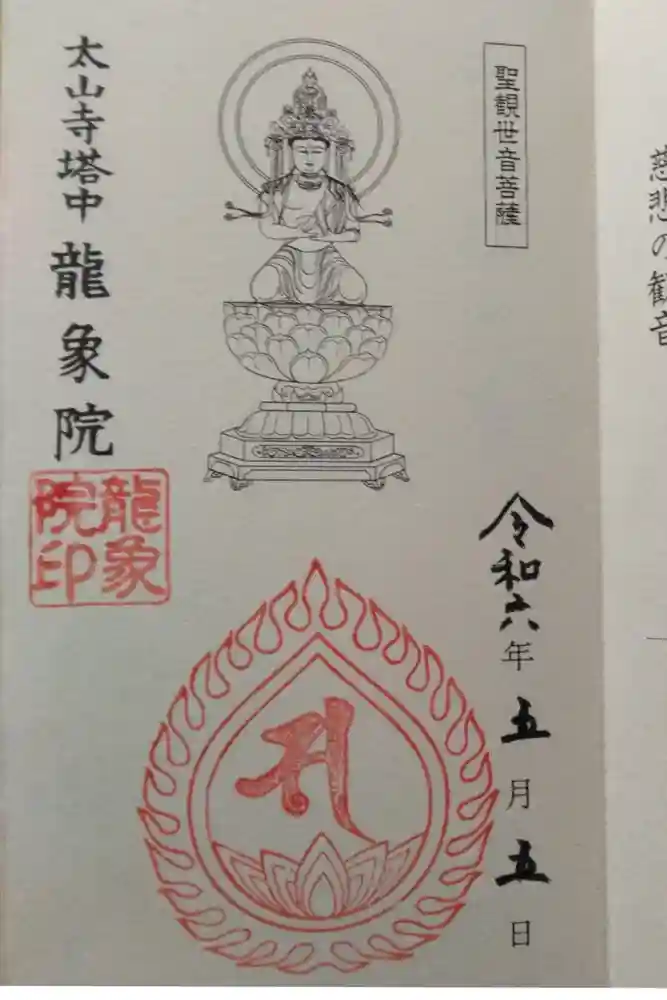 慈悲の観音
聖観世音菩薩
令和六年五月五日
太山寺塔中 龍象院
龍象
院印